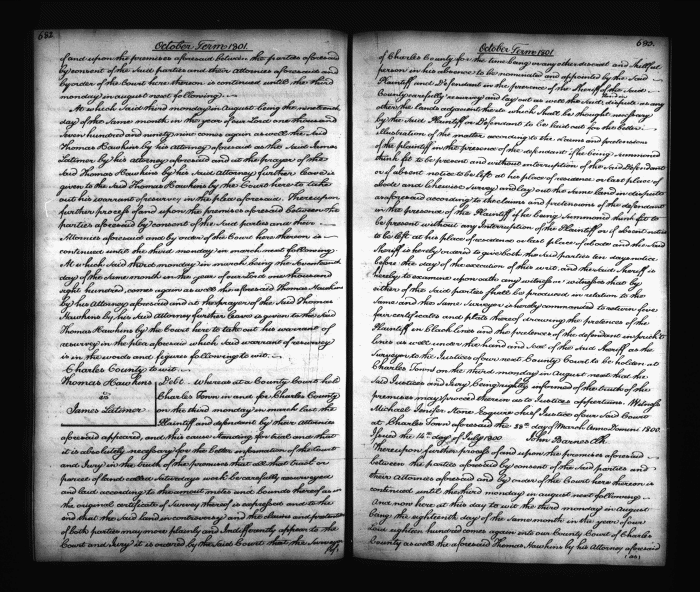 682
October Term 1801.
of and upon the premises aforesaid between the parties aforesaid
by consent of the said parties and their Attornies aforesaid and
by order of the Court here thereon is continued until the third
monday in august next following.
At which said third monday in August being the nineteenth
day of the same month in the year of our Lord one thousand
seven hundred and ninety nine comes again as well the said
Thomas Hawkins by his attorney aforesaid as the said James
Latimer by his attorney aforesaid and at the prayer of the
said Thomas Hawkins by his said Attorney further leave is
given to the said Thomas Hawkins by the Court here to take
out his warrant of resurvey in the plea aforesaid. Thereupon
further process of and upon the premises aforesaid between the
parties aforesaid by consent of the said parties and their
Attornies aforesaid and by order of the Court here thereon is
continued until the third monday in march next following
At which said third monday in march being the seventeenth
day of the same month in the year of our Lord one thousand
eight hundred, comes again as well the aforesaid Thomas Hawkins
by his Attorney aforesaid and at the prayer of the said Thomas
Hawkins by his said Attorney further leave is given to the said
Thomas Hawkins by the Court here to take out his warrant of
resurvey in the plea aforesaid which said warrant of resurvey
is in the words and figures following to wit.
Charles County to wit.
Thomas Hawkins
vs
James Latimer
Debt whereas at a County Court held
Charles Town in and for Charles County
on the third monday in march last the
Plaintiff and defendant by their Attornies
aforesaid appeared, and this cause standing for trial and that
it is absolutely necessary for the better information of the Court
and Jury in the truth of the premises that all that tract or
parcel of land called
be carefully resurveyed
and laid according to the metes and bounds thereof as in
the original certificate of Survey thereof is expressed and to the
end that the said land in controversy and the claims and pretentions
of both parties may more plainly and Indifferently appear to the
Court and Jury it is ordered by the said Court that the Surveyor
October Term 1801
683.
of Charles County for the time being or any other discreet and skillful
person in his absence to be nominated and appointed by the said
Plaintiff and Defendant in the presence of the Sheriff of the said
County carefully resurvey and lay out as well the said disputed as any
other the lands adjacent thereto which shall be thought necessary
by the said Plaintiff or Defendant to be laid out for the better
illustration of the matter according to the claims and pretensions
of the plaintiff in the presence of the defendant if he being summoned
think fit to be present and without interruption of the said Defendant
or if absent notice to be left at his place of residence or last place of
abode and likewise survey and lay out the same land in dispute
as aforesaid according to the claims and pretensions of the defendant
in the presence of the Plaintiff if he being Summoned think fit to
be present without any Interruption of the Plaintiff or if absent notice
to be left at his place of residence or last place of abode and the said
Sheriff is hereby ordered to give both the said parties ten days notice
before the day of the execution of this writ, and the said Sheriff is
hereby to examine upon oath any witness or witnesses that by
either of the said parties shall be produced in relation to the
same and the same Surveyor is hereby commanded to return five
fair certificates and plats thereof drawing the pretences of the
Plaintiff in black lines and the pretences of the defendant in prickt
lines as well under the hand and seal of the said Sheriff as the
Surveyor to the Justices of our next County Court to be holden at
Charles Town on the third monday in august next that the
said Justices and Jury being rightly informed of the truth of the
premises may proceed therein as to Justice appertains. Witness
Michael Jenifer Stone Esquire chief Justice of our said Court
at Charles Town aforesaid the 28th day of March Anno Domini 1800.
Issued the 14th day of July 1800
John Barnes Clk.
Thereupon further process of and upon the premises aforesaid
between the parties aforesaid by consent of the said parties and
their Attornies aforesaid and by order of the Court here thereon is
continued until the third monday in august next following.
And now here at this day to wit the third monday in August
being the eighteenth day of the same month in the year of our
Lord eighteen hundred comes again into our County Court of Charles
County as well the aforesaid Thomas Hawkins by his Attorney aforesaid